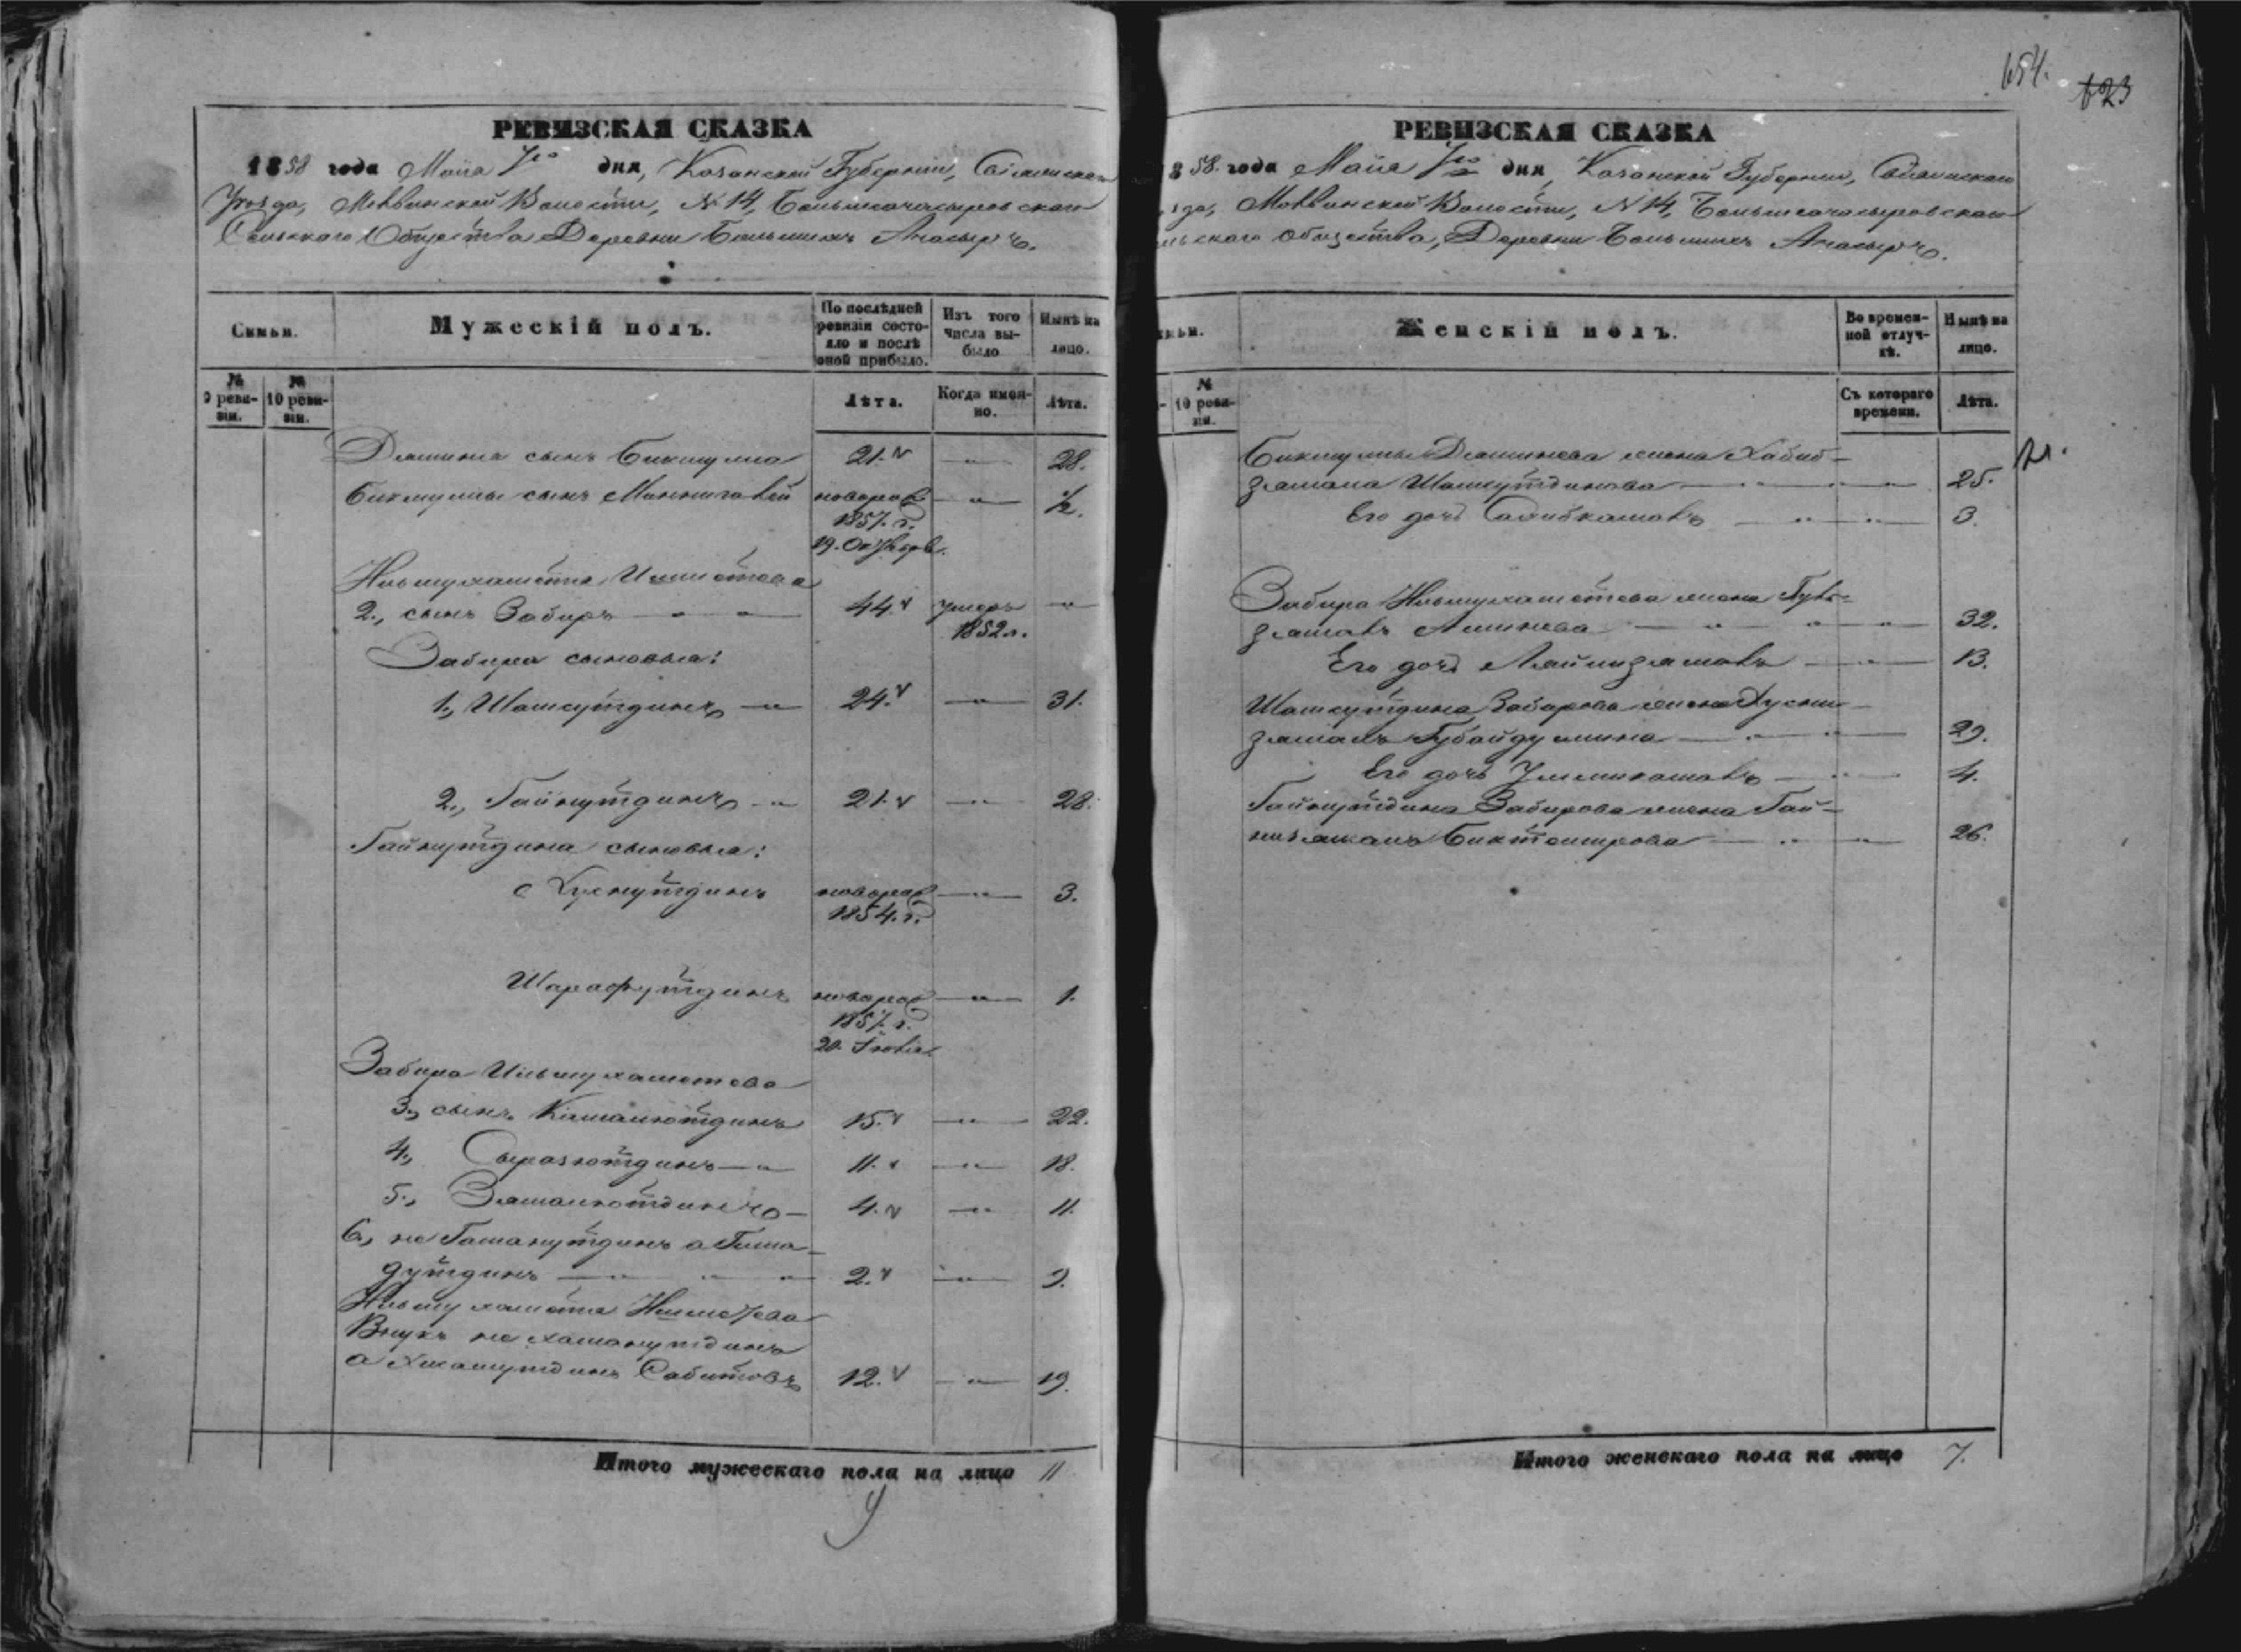 654.
623
РЕВИЗСКАЯ СКАЗКА
1858 года Маiя 7го дня, Казанской Губернiи, Свiяжскаго
Уѣзда, Волости, № 14, Большеачасыровскаго
Сельскаго Общества Деревни Большихъ Ачасыръ.
Семьи.
Мужескій полъ.
По послѣдней ревизіи состояло и послѣ оной прибыло.
Изъ того числа выбыло
Нынѣ на лицо.
№ 9 ревизіи.
№ 10 ревизіи.
Лѣта.
Когда именно.
Лѣта.
Демина сынъ Бикмулла 21. — " — 28.
Бикмуллы сынъ Миннигалей новорож — " — ½.
1857. г.
19. Октября.
Ильмухаметя Ишметева
2., сынъ Забиръ — " — " 44. умеръ — "
1852 г.
Забира сыновья:
1., Шамсутдинъ — " 24. — " — 31.
2., Гайнутдинъ — " 21. — " — 28.
Гайнутдина сыновья:
Хуснутдинъ новорож — " — 3.
1854. г.
Шарафутдинъ новорож — " — 1.
1857. г.
20. Iюня.
Забира Ильмухаметева
3., сынъ Камалютдинъ 15. — " — 22.
4., Сыразютдинъ — " 11. — " — 18.
5., Замалютдинъ — 4. — " — 11.
6., не Гамалутдинъ а Гима-
дутдинъ — " " " 2. — " — 9.
Ильмухаметя Ишметева
Внукъ не
а Сабитовъ 12. — " — 19.
Итого мужескаго пола на лицо 11
РЕВИЗСКАЯ СКАЗКА
858. года Маiя 7го дня, Казанской Губернiи, Свiяжскаго
зда, Волости, № 14, Большеачасыровскаго
льскаго Общества, Деревни Большихъ Ачасыръ.
мьи.
Женскій полъ.
Во временной отлучкѣ.
Нынѣ на лицо.
№ 10 ревизіи.
Съ котораго времени.
Лѣта.
Бикмуллы Деминева жена Хабиб-
замала Шамсутдинова — " — " — 25.
Его дочь — " — " — 3.
Забира Ильмухаметева жена
Аминева — " — " — " — 32.
Его дочь — " — 13.
Шамсутдина Забирова жена Хусни-
замалъ Губайдуллина — " — " — 29.
Его дочь — " — 4.
Гайнутдина Забирова жена Гай-
низямалъ Биктимирова — " — " — 26.
Итого женскаго пола на лицо 7.